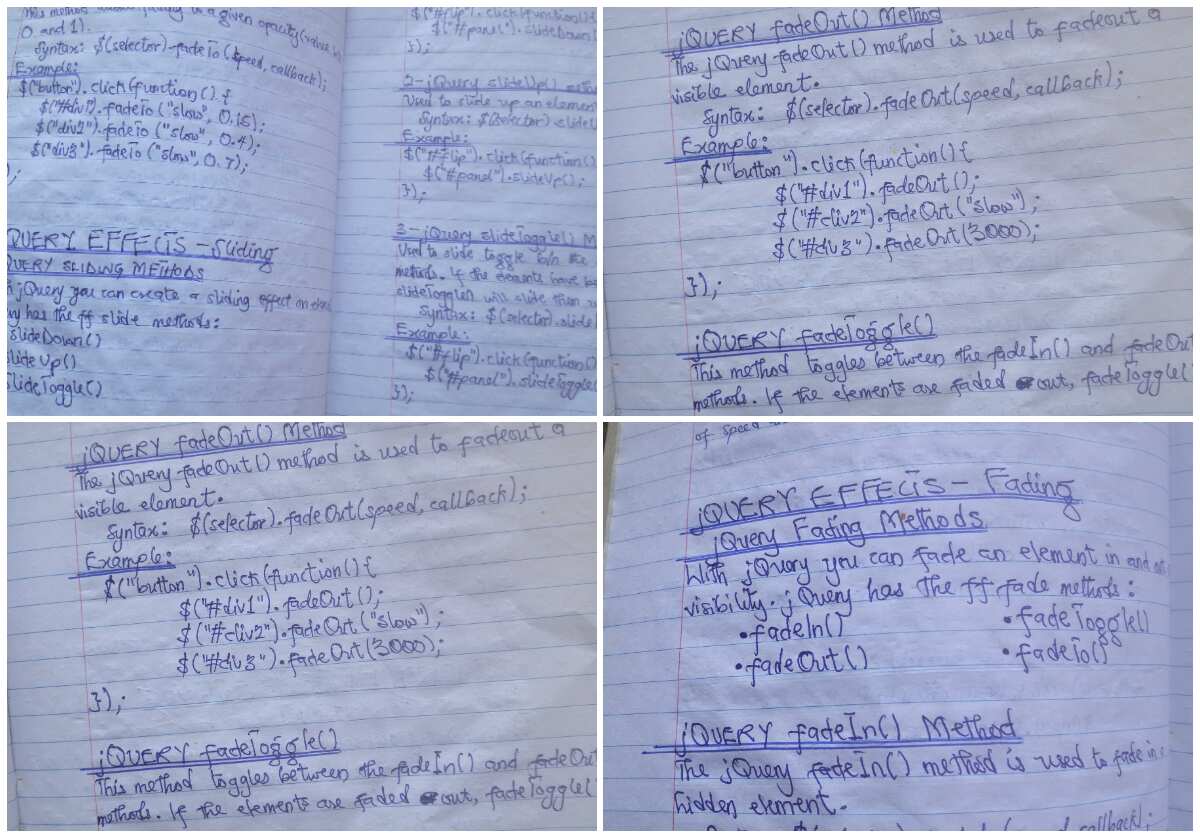 This method allows fading to a given opacity (value
0 and 1).
Syntax: $(selector).fadeTo (speed, callback);
Example:
$("button").click(function() {
$("#div1").fadeTo ("slow", 0.15);
$("div2").fadeTo ("slow", 0.4);
$("div3").fadeTo ("slow", 0.7);
);
QUERY EFFECTS - Sliding
QUERY SLIDING METHODS
jQuery you can create a sliding effect on
has the ff slide methods:
slideDown()
slide Up()
slideToggle()
$("#flip").click(function(){
$("#panel").slideDown(
});
2-jQuery slideUp()
Used to slide up an
Syntax: $(selector).slide
Example:
$("#flip").click(function()
$("#panel").slideUp();
});
3-jQuery slideToggle() M
Used to slide toggle b/n the
methods. If the elements have
slideToggle() will slide them
Syntax: $(selector).slide
Example:
$("#flip").click(function()
$("#panel").slideToggle(
});
jQUERY fadeOut() Method
The jQuery fadeOut() method is used to fadeout a
visible element.
Syntax: $(selector).fadeOut(speed, callback);
Example:
$("button").click(function(){
$("#div1").fadeOut();
$("#div2").fadeOut("slow");
$("#div3").fadeOut(3000);
});
jQUERY fadeToggle()
This method toggles between the fadeIn() and fadeOut
methods. If the elements are faded out, fadeToggle(
jQUERY fadeOut() Method
The jQuery fadeOut() method is used to fadeout a
visible element.
Syntax: $(selector).fadeOut(speed, callback);
Example:
$("button").click(function(){
$("#div1").fadeOut();
$("#div2").fadeOut("slow");
$("#div3").fadeOut(3000);
});
jQUERY fadeToggle()
This method toggles between the fadeIn() and fadeOut
methods. If the elements are faded out, fadeToggle(
of speed
jQUERY EFFECTS - Fading
jQuery Fading Methods
With jQuery you can fade an element in and out
visibility. jQuery has the ff fade methods:
• fadeIn() • fadeToggle()
• fadeOut() • fadeTo()
jQUERY fadeIn() Method
The jQuery fadeIn() method is used to fade in
hidden element.
callback);